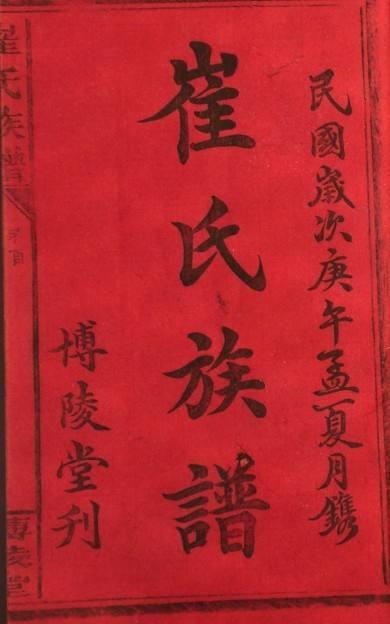 民國歲次庚午孟夏月鐫
崔氏族譜
博陵堂刊
崔氏族譜
博陵堂